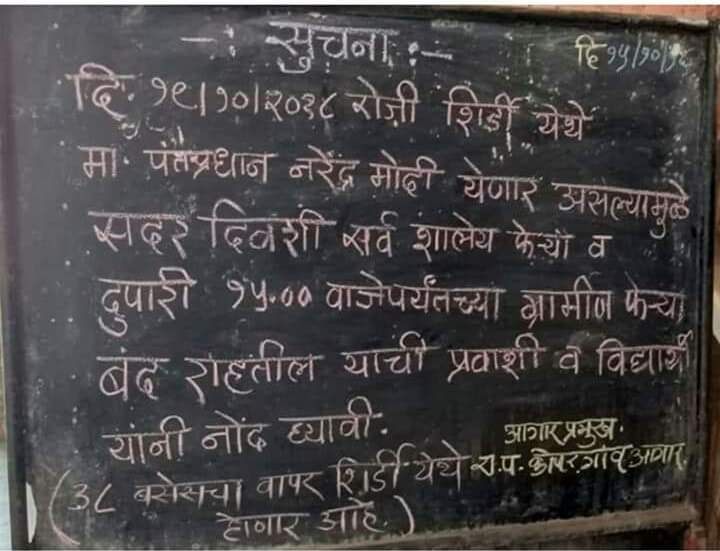 -: सुचना :-
दि १५/१०/१८
दि. १९/१०/२०१८ रोजी शिर्डी येथे
मा. पंतप्रधान नरेंद्र मोदी येणार असल्यामुळे
सदर दिवशी सर्व शालेय फेऱ्या व
दुपारी १५.०० वाजेपर्यंतच्या ग्रामीण फेऱ्या
बंद राहतील याची प्रवाशी व विद्यार्थी
यांनी नोंद घ्यावी.
आगार प्रमुख.
रा.प. कोपरगांव आगार.
(३८ बसेसचा वापर शिर्डी येथे
होणार आहे.)